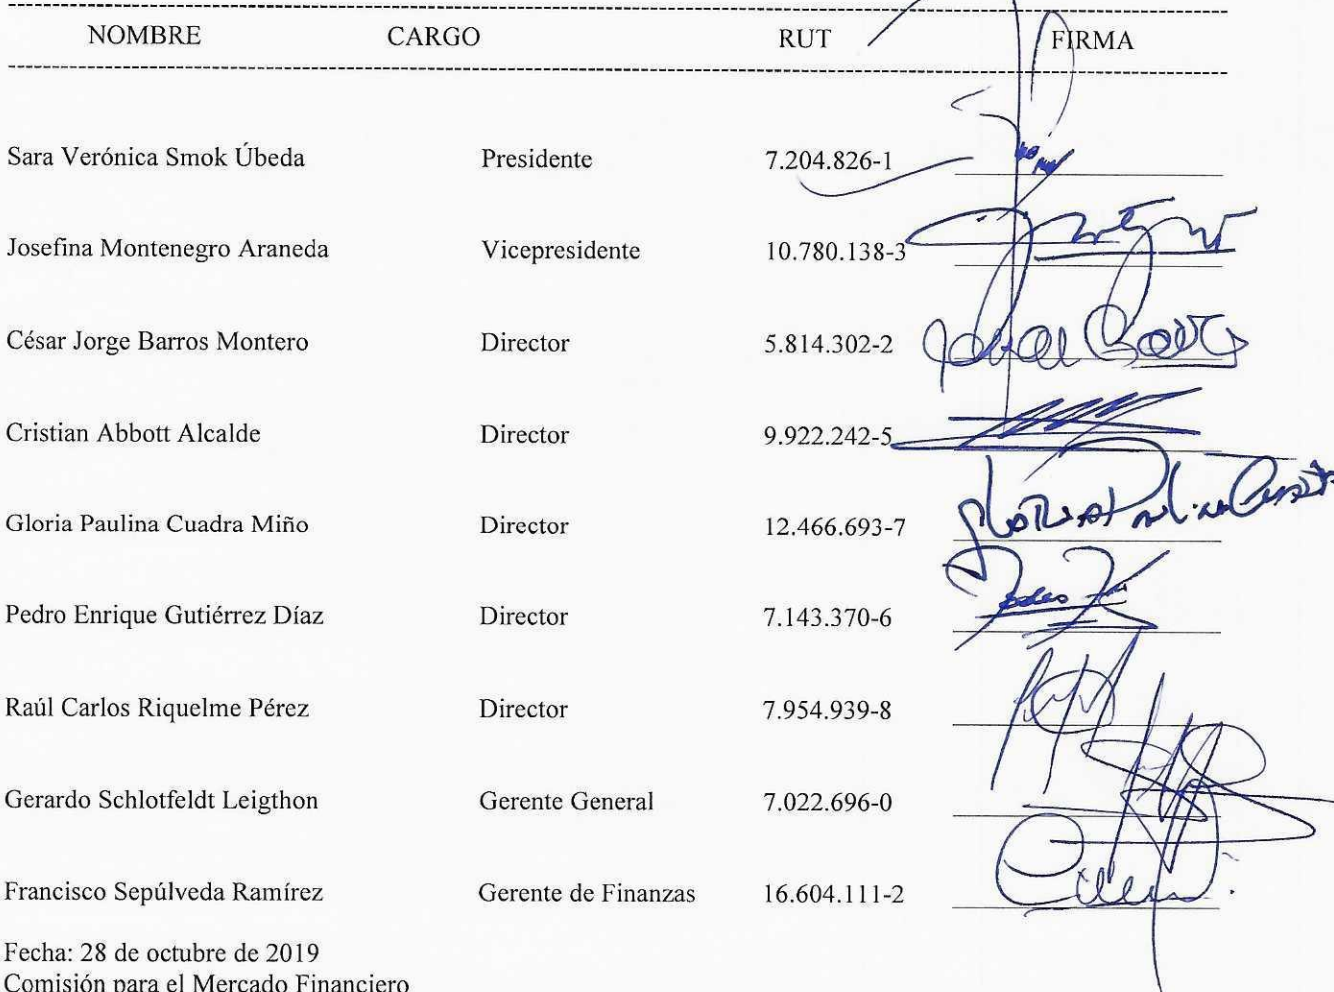 NOMBRE CARGO RUT FIRMA
Sara Verónica Smok Úbeda Presidente 7.204.826-1
Josefina Montenegro Araneda Vicepresidente 10.780.138-3
César Jorge Barros Montero Director 5.814.302-2
Cristian Abbott Alcalde Director 9.922.242-5
Gloria Paulina Cuadra Miño Director 12.466.693-7
Pedro Enrique Gutiérrez Díaz Director 7.143.370-6
Raúl Carlos Riquelme Pérez Director 7.954.939-8
Gerardo Schlotfeldt Leigthon Gerente General 7.022.696-0
Francisco Sepúlveda Ramírez Gerente de Finanzas 16.604.111-2
Fecha: 28 de octubre de 2019
Comisión para el Mercado Financiero